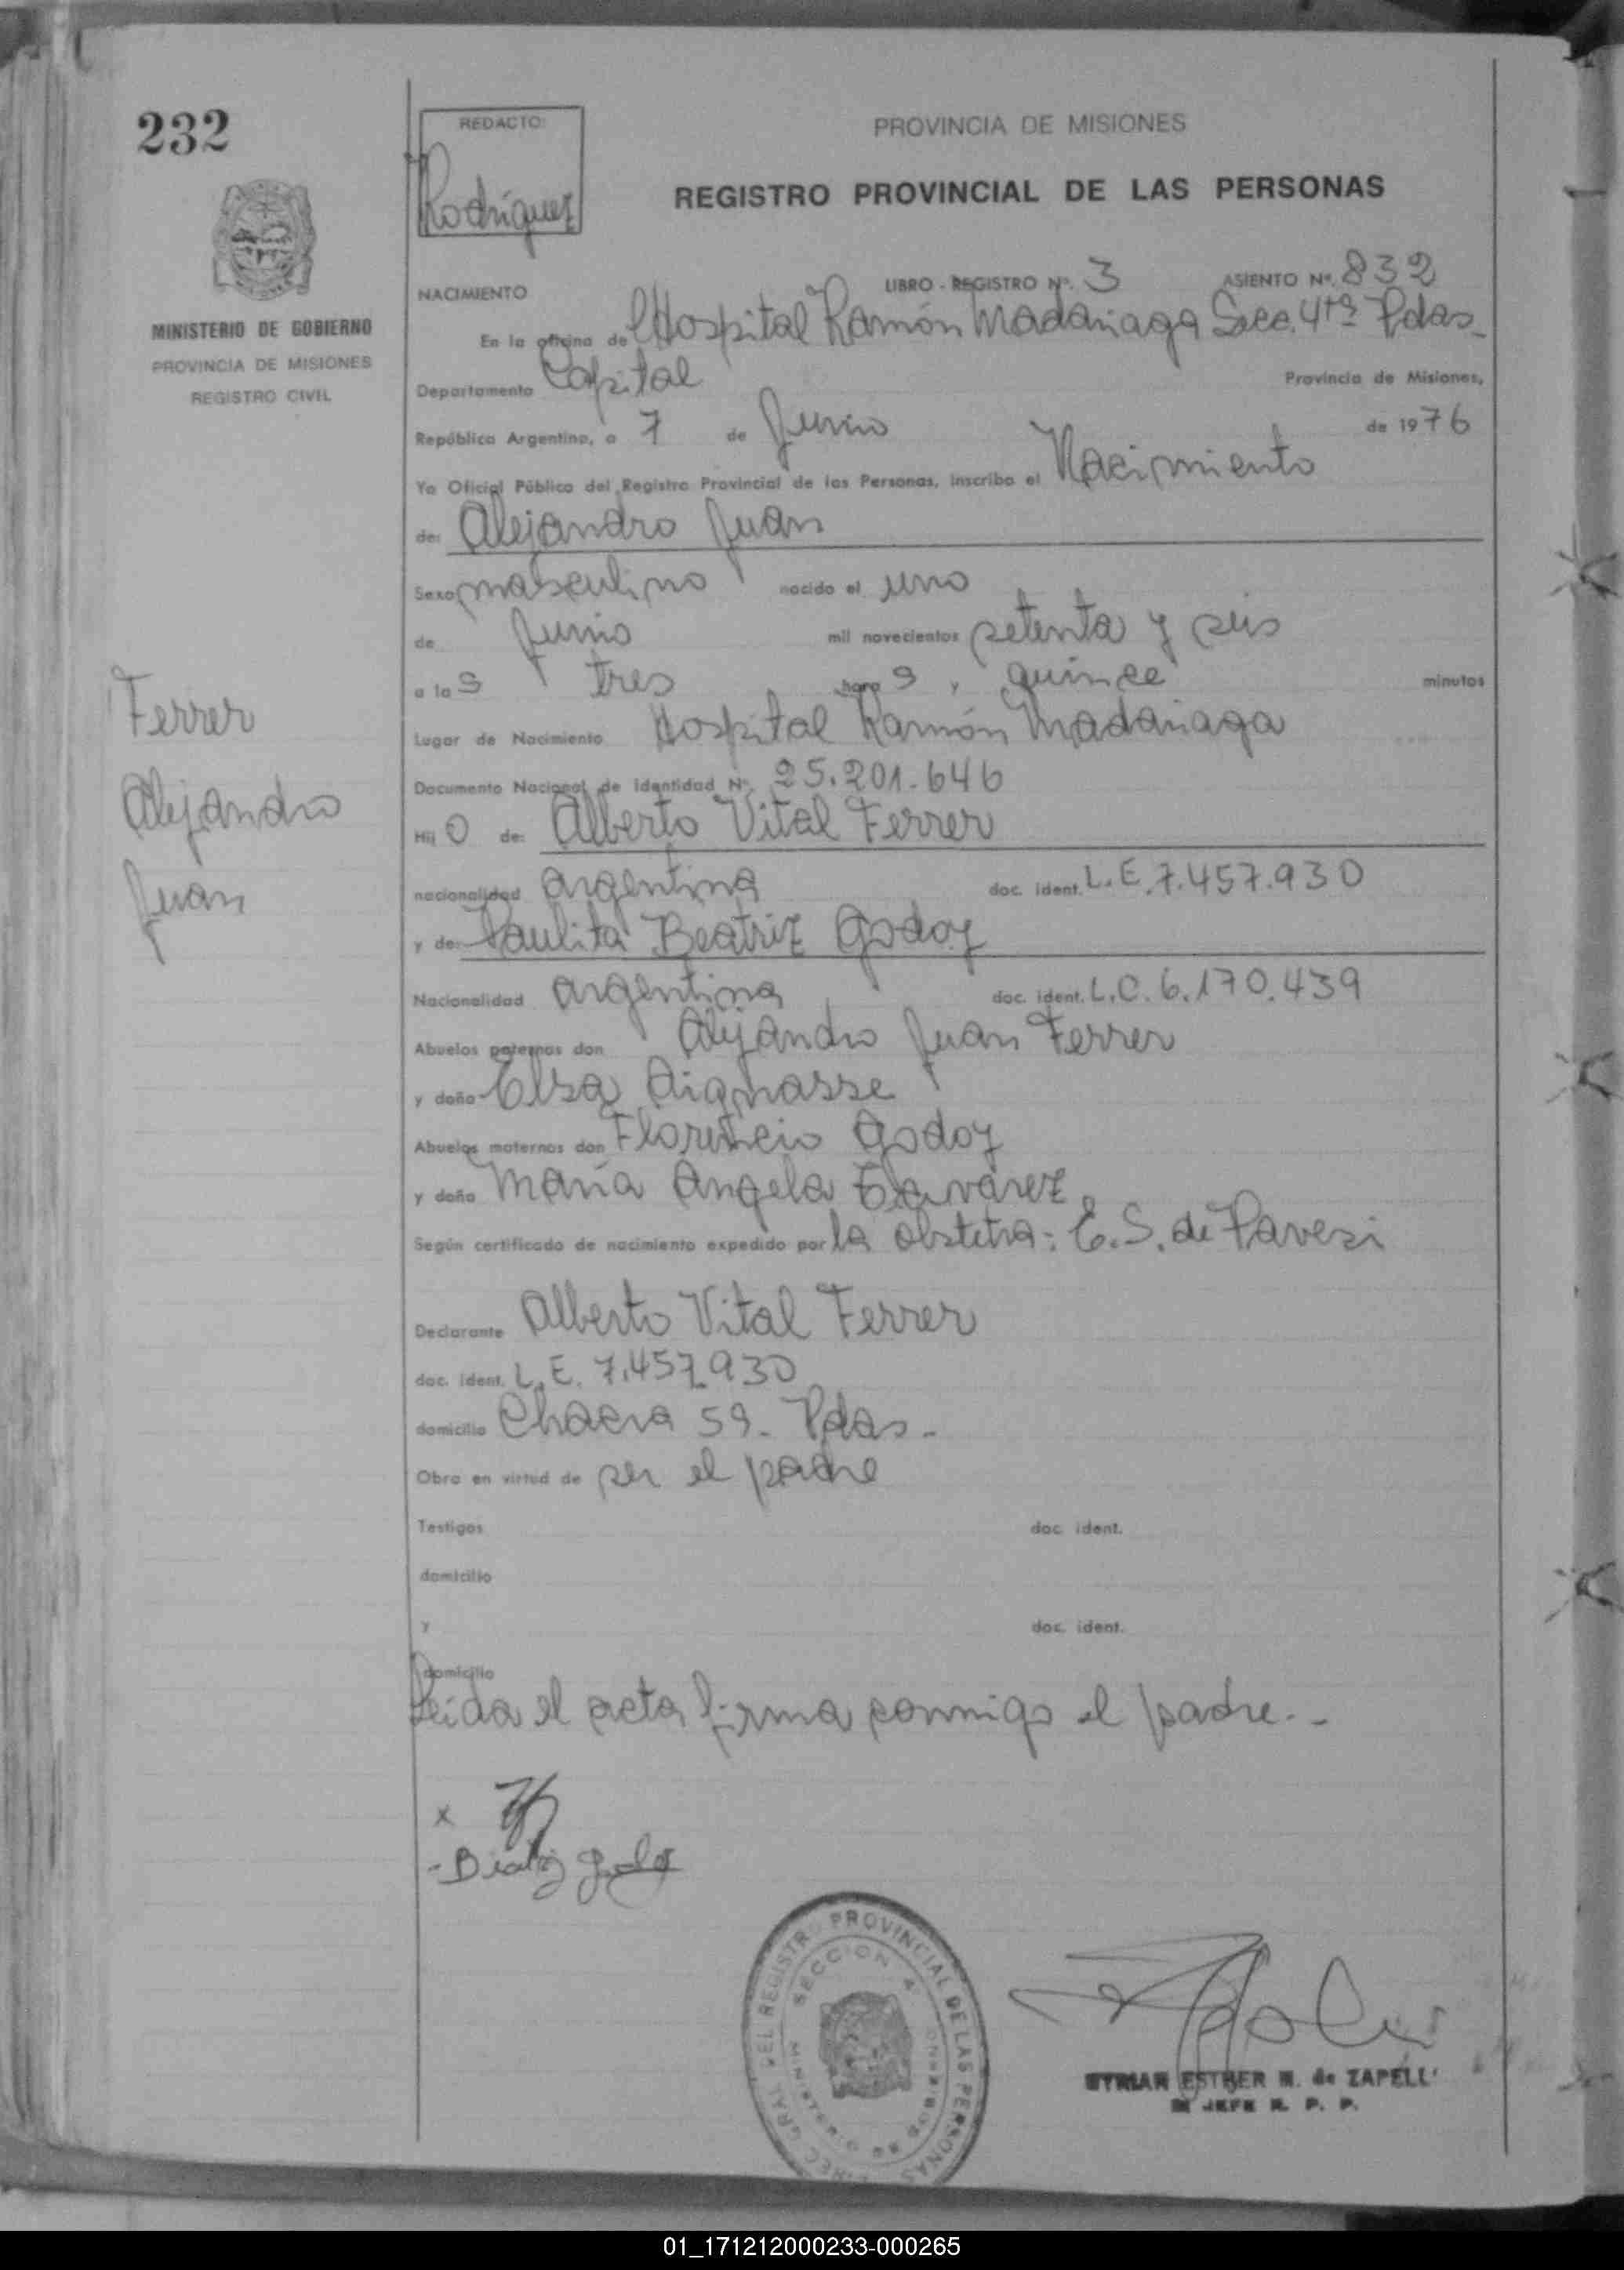 232
REDACTO:
Rodríguez
PROVINCIA DE MISIONES
REGISTRO PROVINCIAL DE LAS PERSONAS
MINISTERIO DE GOBIERNO
PROVINCIA DE MISIONES
REGISTRO CIVIL
NACIMIENTO LIBRO - REGISTRO Nº. 3 ASIENTO Nº. 832
En la oficina de Hospital Ramón Madariaga Secc. 4ta Pdas.
Departamento Capital Provincia de Misiones,
República Argentina, a 7 de Junio de 1976
Yo Oficial Público del Registro Provincial de las Personas, inscribo el Nacimiento
de: Alejandro Juan
Sexo masculino nacido el uno
de Junio mil novecientos setenta y seis
a las tres horas y quince minutos
Lugar de Nacimiento Hospital Ramón Madariaga
Documento Nacional de Identidad Nº. 25.201.646
Hijo de: Alberto Vital Ferrer
nacionalidad argentina doc. ident. L.E. 7.457.930
y de: Paulita Beatriz Godoy
Nacionalidad argentina doc. ident. L.C. 6.170.439
Abuelos paternos don Alejandro Juan Ferrer
y doña Elsa Aignasse
Abuelos maternos don Florencio Godoy
y doña María Angela
Según certificado de nacimiento expedido por la obstetra: E.S. de Pavesi
Declarante Alberto Vital Ferrer
doc. ident. L.E. 7.457.930
domicilio Chacra 59. Pdas.-
Obra en virtud de ser el padre
Testigos doc. ident.
domicilio
y doc. ident.
domicilio
Leida el acta firma conmigo el padre.-
Ferrer
Alejandro
Juan
x
- Beatriz Godoy
DIREC. GRAL. DEL REGISTRO PROVINCIAL DE LAS PERSONAS
SECCION 4
MINISTERIO DE GOBIERNO
MYRIAN ESTHER M. de ZAPELLI
JEFE R. P. P.
01_171212000233-000265